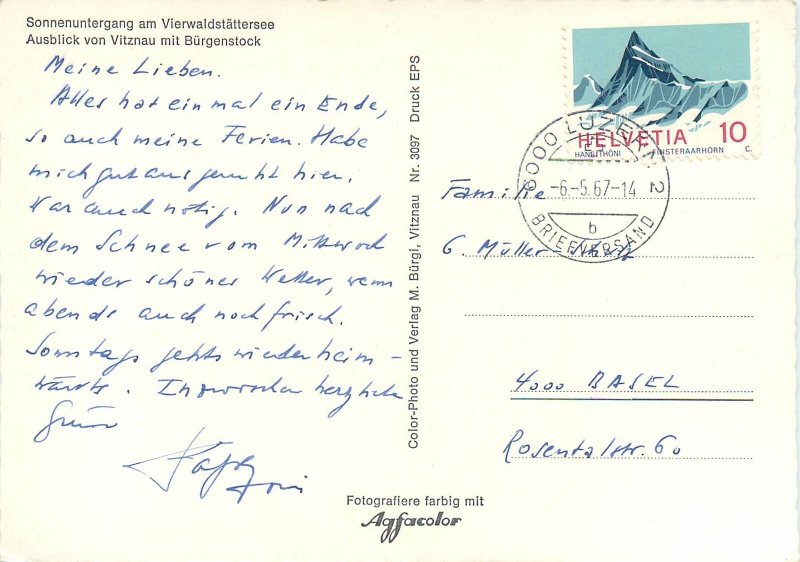 Sonnenuntergang am Vierwaldstättersee
Ausblick von Vitznau mit Bürgenstock
Meine Lieben.
Alles hat einmal ein Ende,
so auch meine Ferien. Habe
mich gut ausgeruht hier.
War auch nötig. Nun nach
dem Schnee vom Mittwoch
wieder schönes Wetter, wenn
abends auch noch frisch.
Sonntags jetzt wieder heim-
wärts. Inzwischen herzliche
Grüsse
Color-Photo und Verlag M. Bürgi, Vitznau Nr. 3097 Druck EPS
HELVETIA 10
HANS THÖNI FINSTERAARHORN C.
6000 LUZERN 2
-6.-5.67-14
b
BRIEFVERSAND
Familie
G. Müller
4000 BASEL
Rosentalstr. 60
Fotografiere farbig mit
Agfacolor